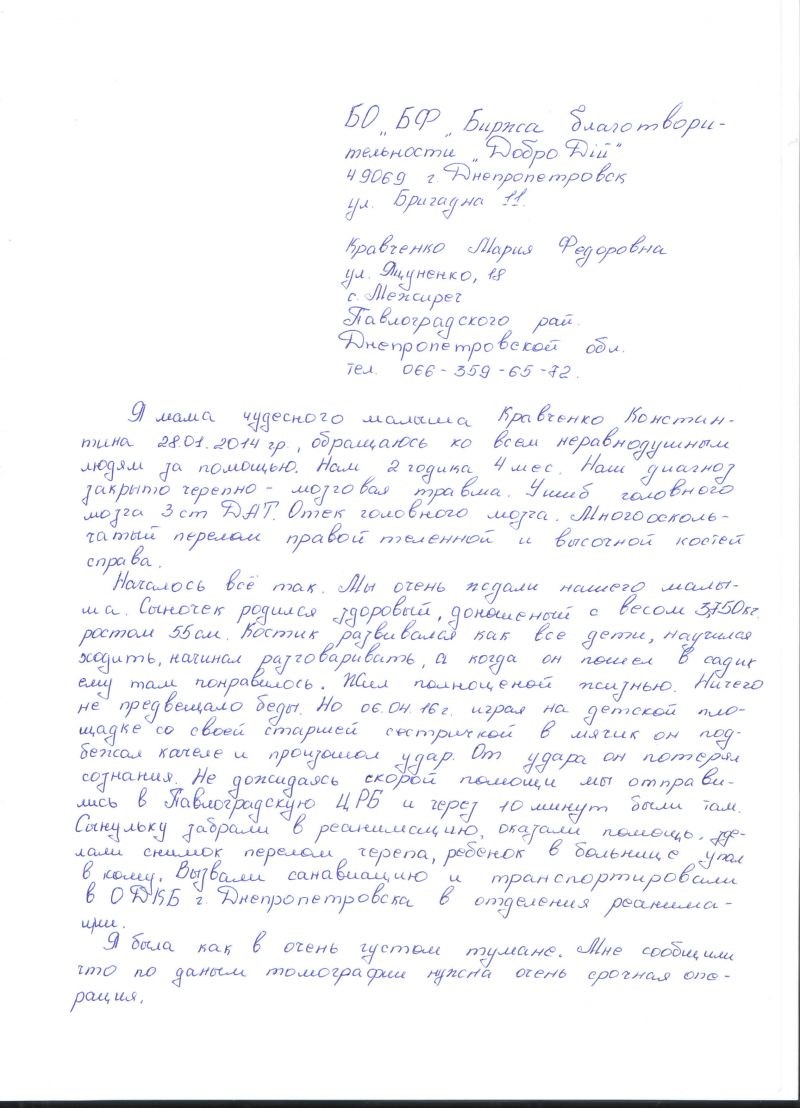 БО „БФ „Биржа благотвори-
тельности „Добро Дій"
49069 г. Днепропетровск
ул. Бригадна 11.
Кравченко Мария Федоровна
ул. Яцуненко, 18
с. Межиреч
Павлоградского рай.
Днепропетровской обл.
тел. 066-359-65-72.
Я мама чудесного малыша Кравченко Констин-
тина 28.01.2014 гр., обращаюсь ко всем неравнодушным
людям за помощью. Нам 2 годика 4 мес. Наш диагноз
закрыто черепно-мозговая травма. Ушиб головного
мозга 3 ст ДАТ. Отек головного мозга. Многооскољ-
чатый перелом правой теменной и височной костей
справа.
Началось всё так. Мы очень ждали нашего малы-
ша. Сыночек родился здоровый, доношеный с весом 3,750кг.
ростом 55см. Костик развивался как все дети, научился
ходить, начинал разговаривать, а когда он пошел в садик
ему там понравилось. Жил полноценой жизнью. Ничего
не предвещало беды. Но 06.04.16г. играя на детской пло-
щадке со своей старшей сестричкой в мячик он под-
бежал качеле и произошол удар. От удара он потерял
сознания. Не дожидаясь скорой помощи мы отправи-
лись в Павлоградскую ЦРБ и через 10 минут были там.
Сынульку забрали в реанимацию, оказали помощь. зде-
лали снимок перелом черепа, ребенок в больнице упал
в кому. Вызвали санавиацию и транспортировали
в ОДКБ г. Днепропетровска в отделения реанима-
ции.
Я была как в очень густом тумане. Мне сообщили
что по даным томографии нужна очень срочная опе-
рация.